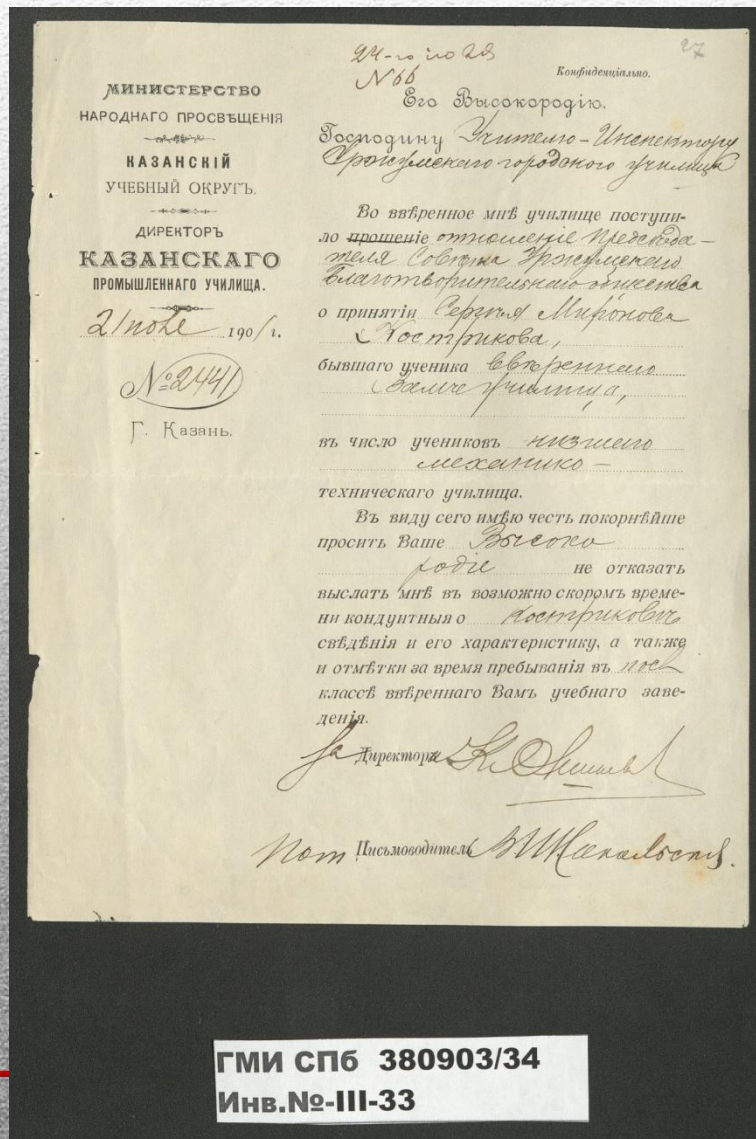 27
24-го іюля
№ 66
Конфиденціально.
МИНИСТЕРСТВО
НАРОДНАГО ПРОСВѢЩЕНІЯ
КАЗАНСКІЙ
УЧЕБНЫЙ ОКРУГЪ.
ДИРЕКТОРЪ
КАЗАНСКАГО
ПРОМЫШЛЕННАГО УЧИЛИЩА.
21 1901 г.
№ 2441
Г. Казань.
Его Высокородію.
Господину Учителю-Инспектору
Уржумскаго городского училища
Во ввѣренное мнѣ училище поступи-
ло прошеніе отношеніе Председа-
теля Совѣта Уржумскаго
Благотворительнаго общества
о принятіи Сергѣя Миронова
Кострикова,
бывшаго ученика ввѣреннаго
училища,
въ число учениковъ низшаго
механико-
техническаго училища.
Въ виду сего имѣю честь покорнѣйше
просить Ваше Высоко
родіе не отказать
выслать мнѣ въ возможно скоромъ време-
ни кондуитныя о Костриковѣ
свѣдѣнія и его характеристику, а также
и отмѣтки за время пребыванія въ
классѣ ввѣреннаго Вамъ учебнаго заве-
денія.
За Директора
Письмоводитель
ГМИ СПб 380903/34
Инв.№-III-33